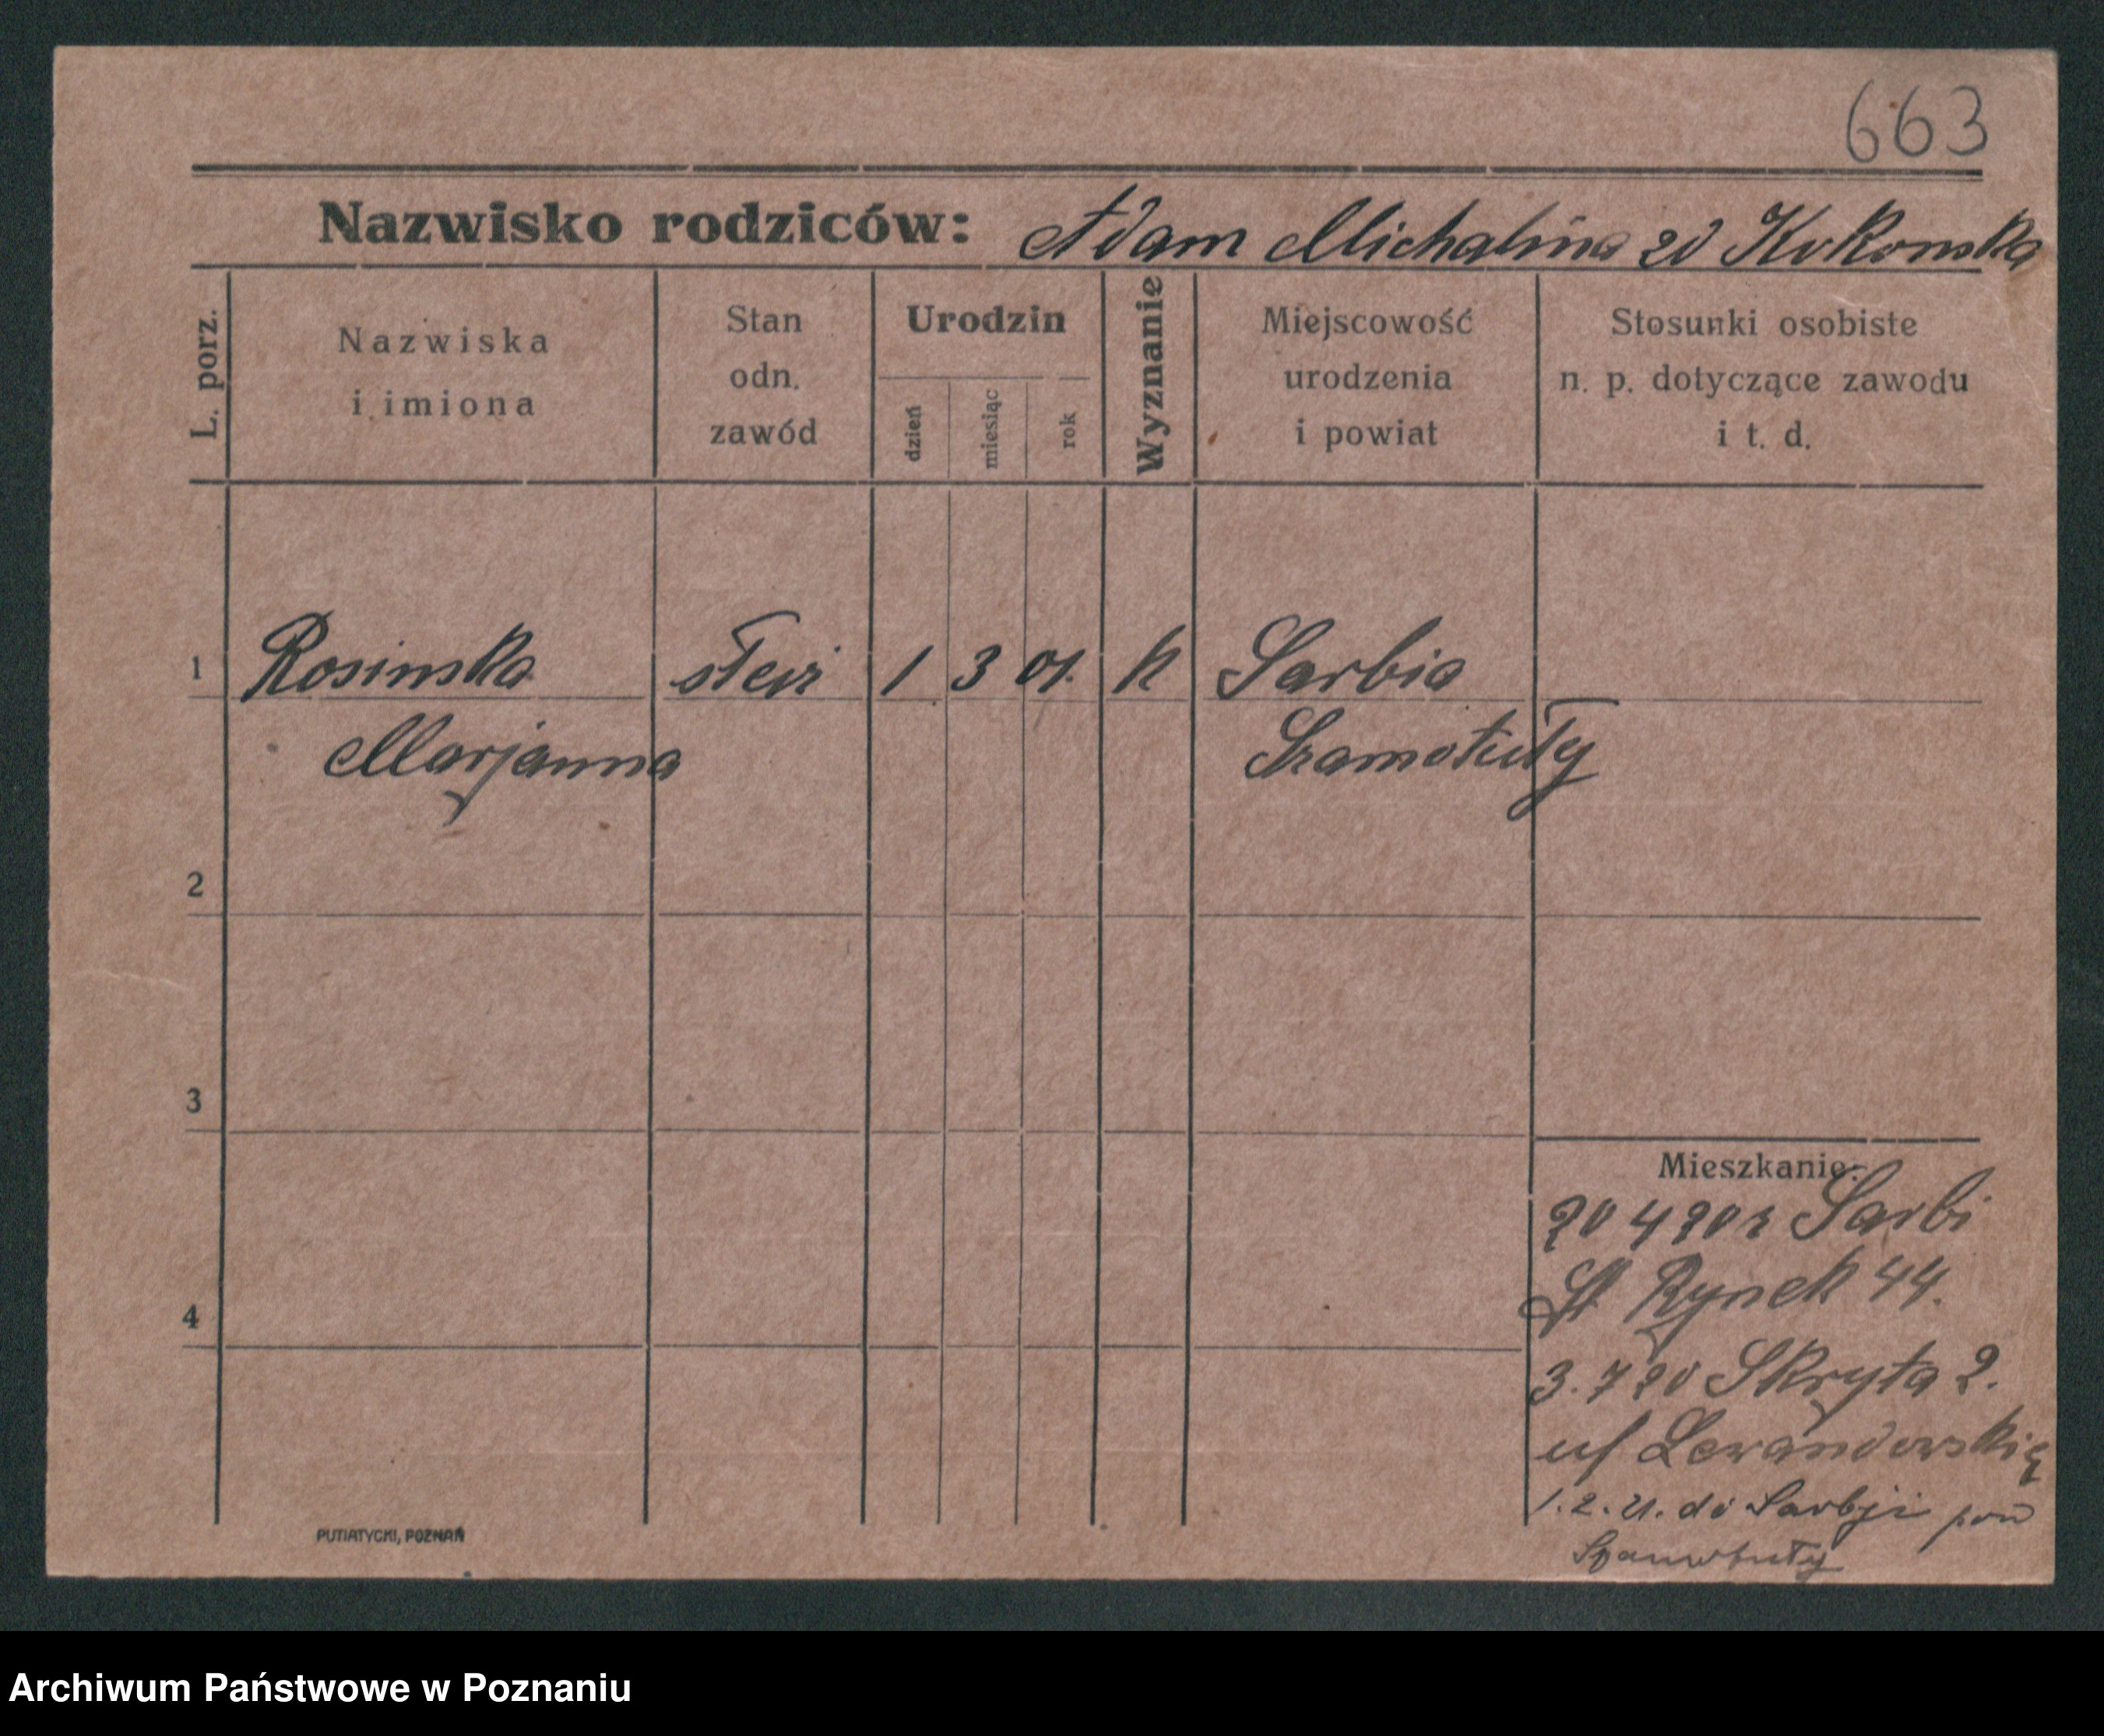 663
Nazwisko rodziców: Adam Michalina zd Kokonska
L. porz.
Nazwiska
i imiona
Stan
odn.
zawód
Urodzin
dzień
miesiąc
rok
Wyznanie
Miejscowość
urodzenia
i powiat
Stosunki osobiste
n. p. dotyczące zawodu
i t. d.
1 Rosinska 1 3 01. k Sarbia
Marjanna Szamotuły
2
3
4
Mieszkanie:
20 4 20 r Sarbi
St Rynek 44.
3.7 20 Skryta 2.
u/ Lewandowskię
1.2.21. do Sarbji pow
Szamotuły
PUTIATYCKI, POZNAŃ
Archiwum Państwowe w Poznaniu